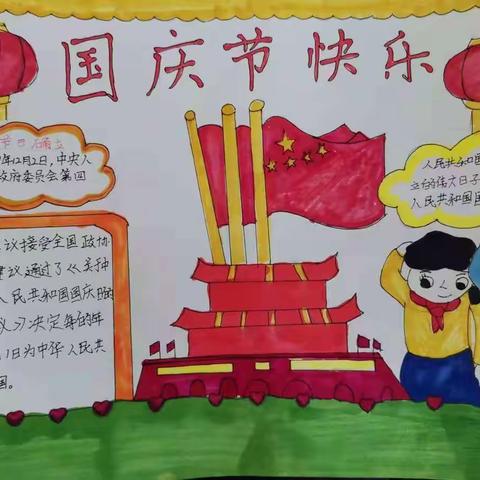 国庆节快乐
节日确立
年12月2日，中央人
政府委员会第四
议接受全国政协
建议通过了《关种
人民共和国国庆日的
议》决定每的年
1日为中华人民共
国。
人民共和国
立的伟大日子
人民共和国国